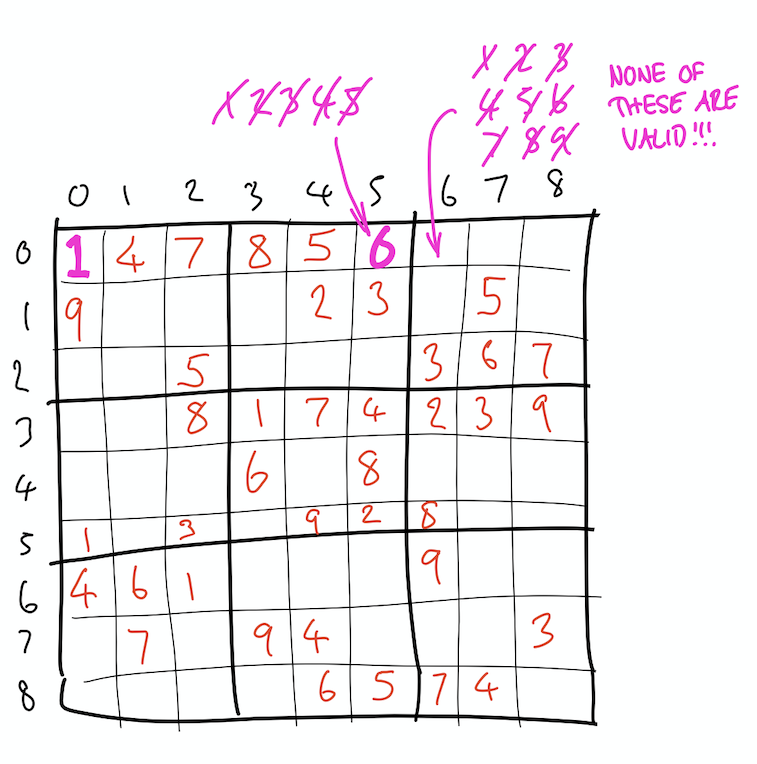 1 2 3
4 5 6
7 8 9
NONE OF
THESE ARE
VALID!!!
1 2 3 4 5
0 1 2 3 4 5 6 7 8
0 1 4 7 8 5 6
1 9 2 3 5
2 5 3 6 7
3 8 1 7 4 2 3 9
4 6 8
5 1 3 9 2 8
6 4 6 1 9
7 7 9 4 3
8 6 5 7 4